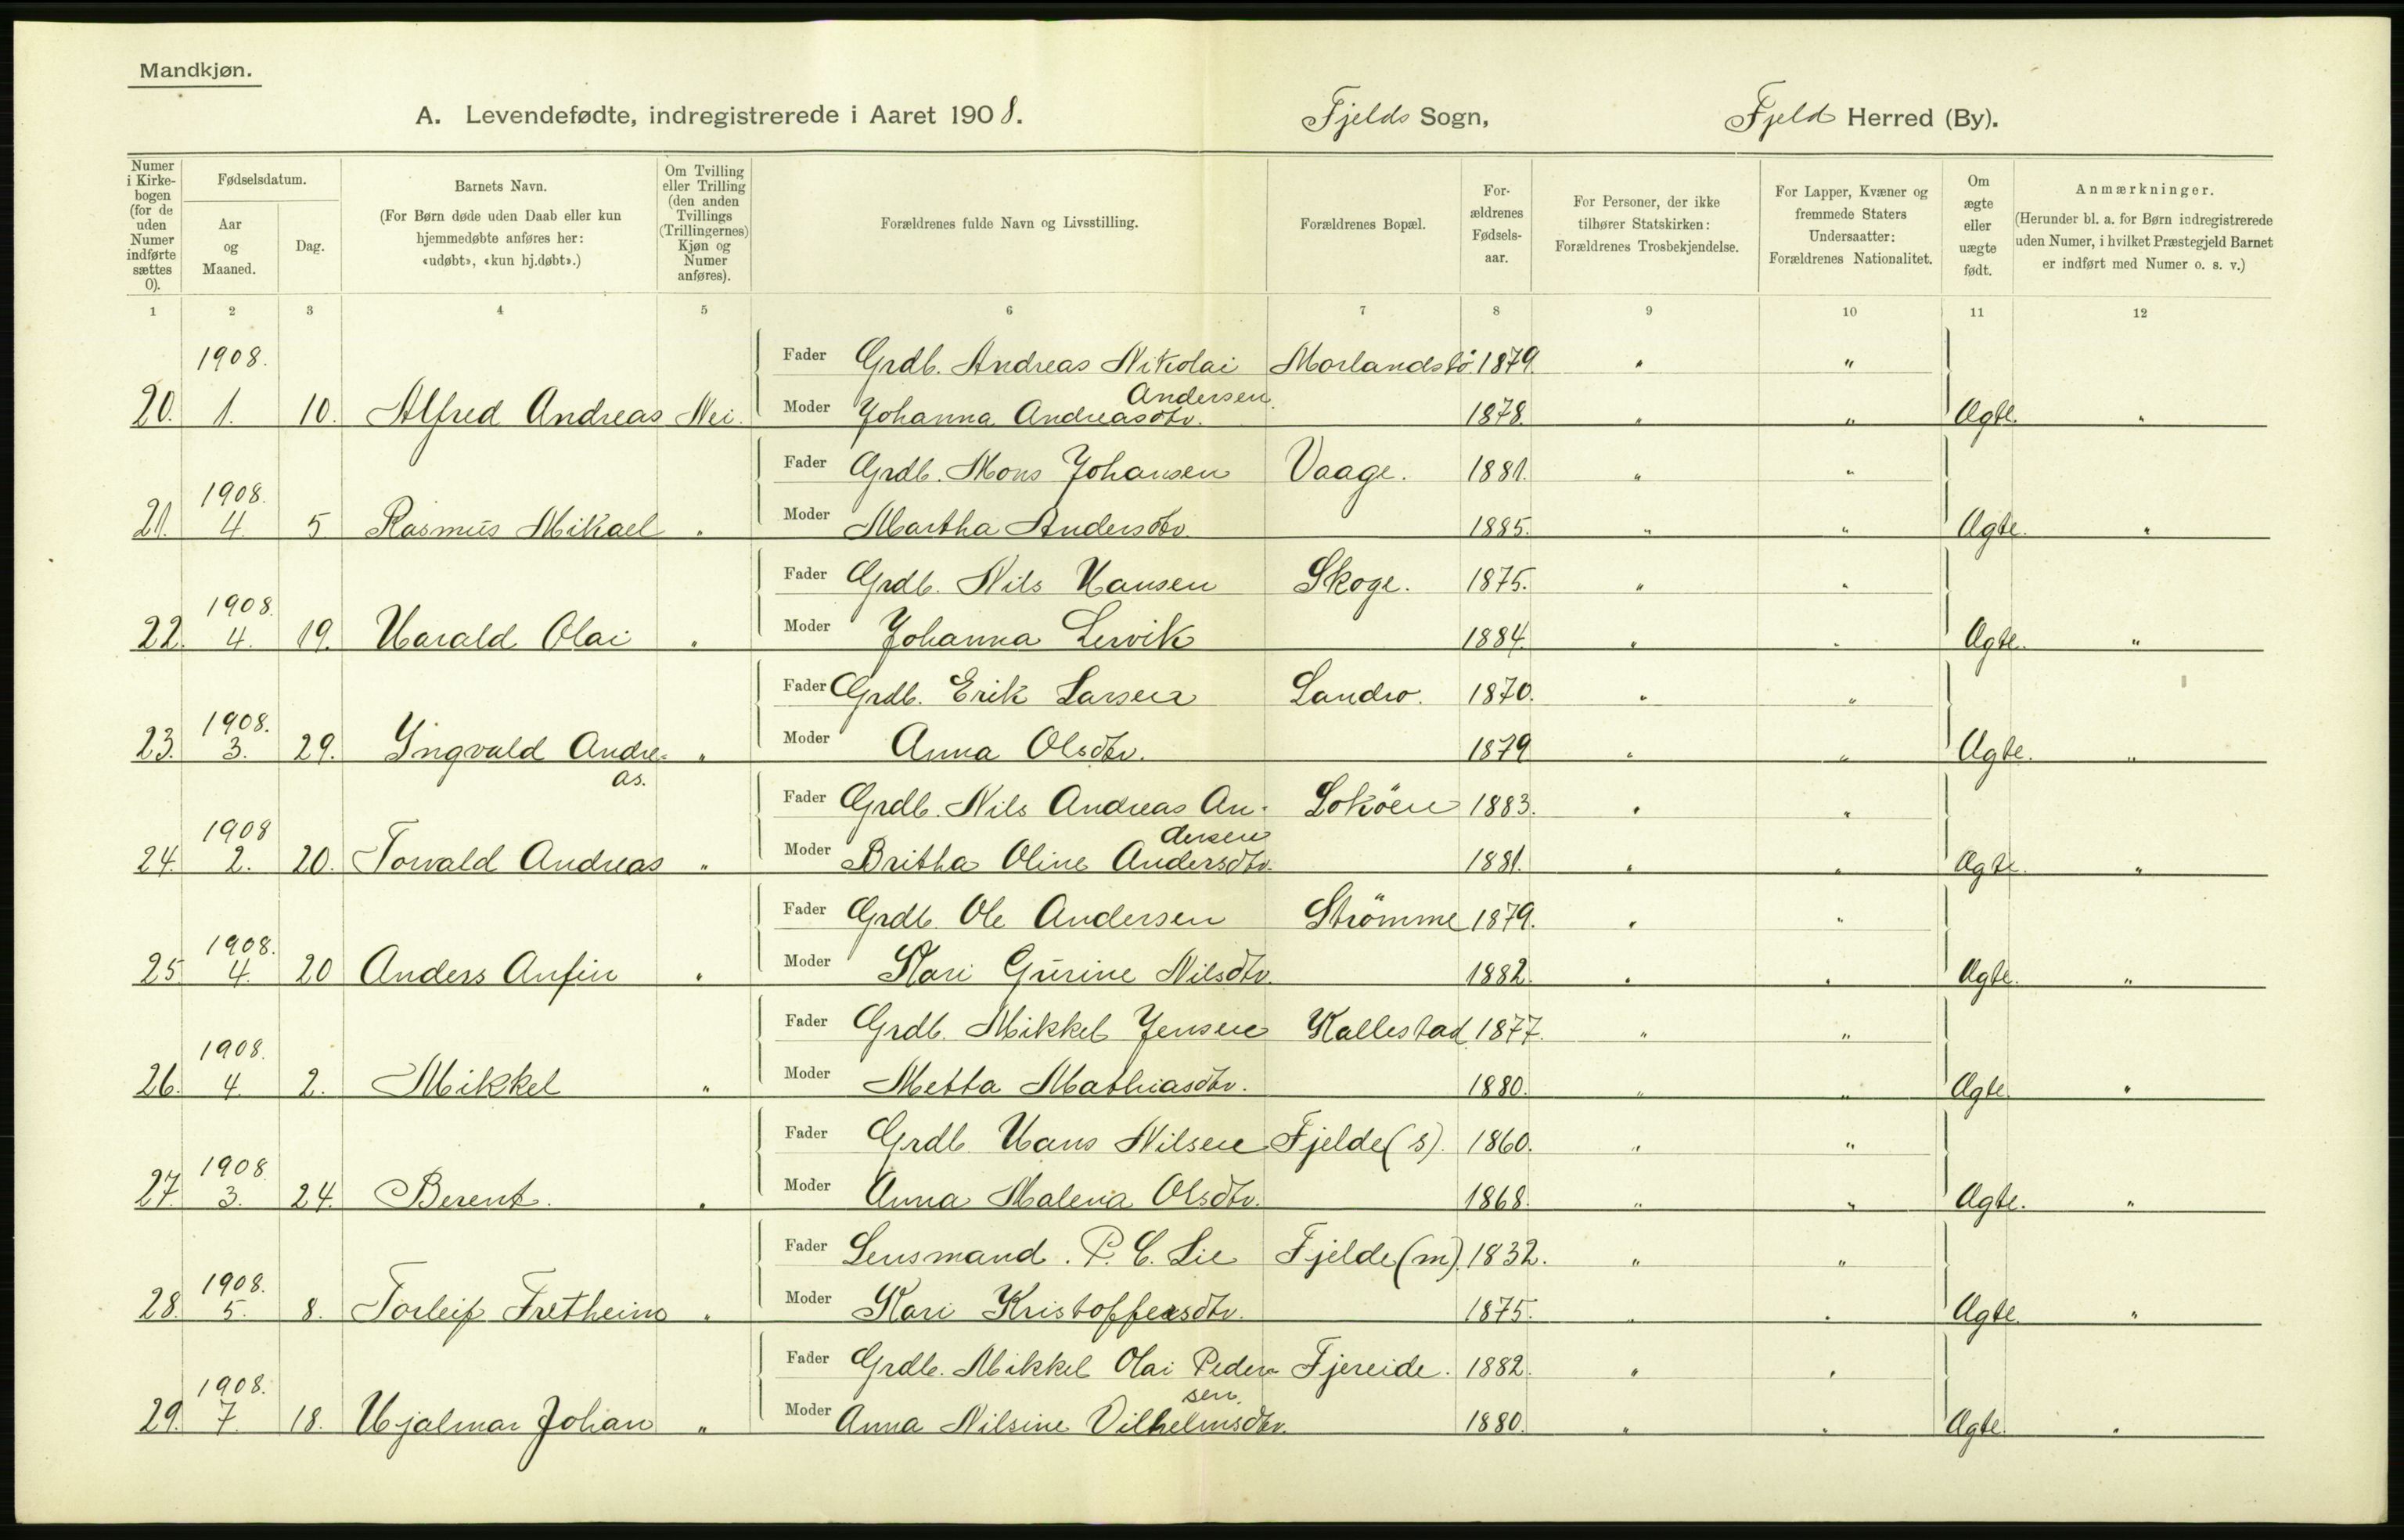 Mandkjøn.
A. Levendefødte, indregistrerede i Aaret 1908. Fjelds Sogn, Fjeld Herred (By).
Numer i Kirkebogen (for de uden Numer indførte sættes 0).
Fødselsdatum.
Aar og Maaned.
Dag.
Barnets Navn.
(For Børn døde uden Daab eller kun hjemmedøbte anføres her: «udøbt», «kun hj.døbt».)
Om Tvilling eller Trilling (den anden Tvillings (Trillingernes) Kjøn og Numer anføres).
Forældrenes fulde Navn og Livsstilling.
Forældrenes Bopæl.
Forældrenes Fødselsaar.
For Personer, der ikke tilhører Statskirken: Forældrenes Trosbekjendelse.
For Lapper, Kvæner og fremmede Staters Undersaatter: Forældrenes Nationalitet.
Om ægte eller uægte født.
Anmærkninger.
(Herunder bl. a. for Børn indregistrerede uden Numer, i hvilket Præstegjeld Barnet er indført med Numer o. s. v.)
1 2 3 4 5 6 7 8 9 10 11 12
1908. Fader Grdb. Andreas Nikolai Andersen Morlandsbö. 1879. " "
20. 1. 10. Alfred Andreas Nei. Moder Johanna Andreasdtr. 1878. " " Ægte. "
Fader Grdb. Mons Johansen Vaage. 1881. " "
1908.
21. 4. 5 Rasmus Mikael " Moder Martha Andersdtr. 1885. " " Ægte. "
Fader Grdb. Nils Hansen Skoge. 1875. " "
1908.
22. 4. 19. Harald Olai " Moder Johanna Lervik 1884. " " Ægte. "
Fader Grdb. Erik Larsen Landro. 1870. " "
1908.
23. 3. 29. Yngvald Andreas. " Moder Anna Olsdtr. 1879 " " Ægte. "
Fader Grdb. Nils Andreas Andersen Loköen 1883. " "
1908
24. 2. 20. Torvald Andreas " Moder Britha Oline Andersdtr. 1881. " " Ægte. "
Fader Grdb. Ole Andersen Strömme 1879. " "
1908.
25 4. 20 Anders Anfin " Moder Kari Gurine Nilsdtr. 1882. " " Ægte. "
Fader Grdb. Mikkel Jensen Kallestad 1877. " "
1908.
26. 4. 2. Mikkel " Moder Metta Mathiasdtr. 1880. " " Ægte. "
Fader Grdb. Hans Nilsen Fjelde (s). 1860. " "
1908
27. 3. 24. Berent. " Moder Anna Malena Olsdtr. 1868. " " Ægte. "
Fader Lensmand. P. C. Lie Fjelde (m). 1832. " "
1908.
28. 5. 8. Torleif Fretheim " Moder Kari Kristoffersdtr. 1875. " " Ægte. "
Fader Grdb. Mikkel Olai Pedersen. Fjereide. 1882. " "
1908.
29. 7. 18. Hjalmar Johan " Moder Anna Nilsine Vilhelmsdtr. 1880. " " Ægte. "